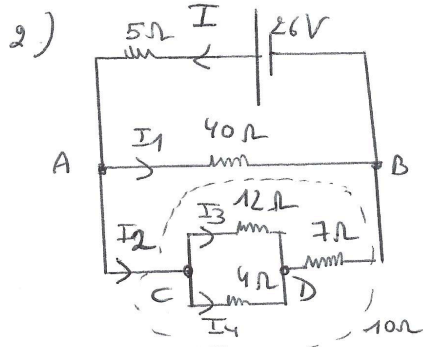 2)
5Ω
I
26V
I1
40Ω
A
B
I2
I3
12Ω
7Ω
C
4Ω
D
I4
10Ω